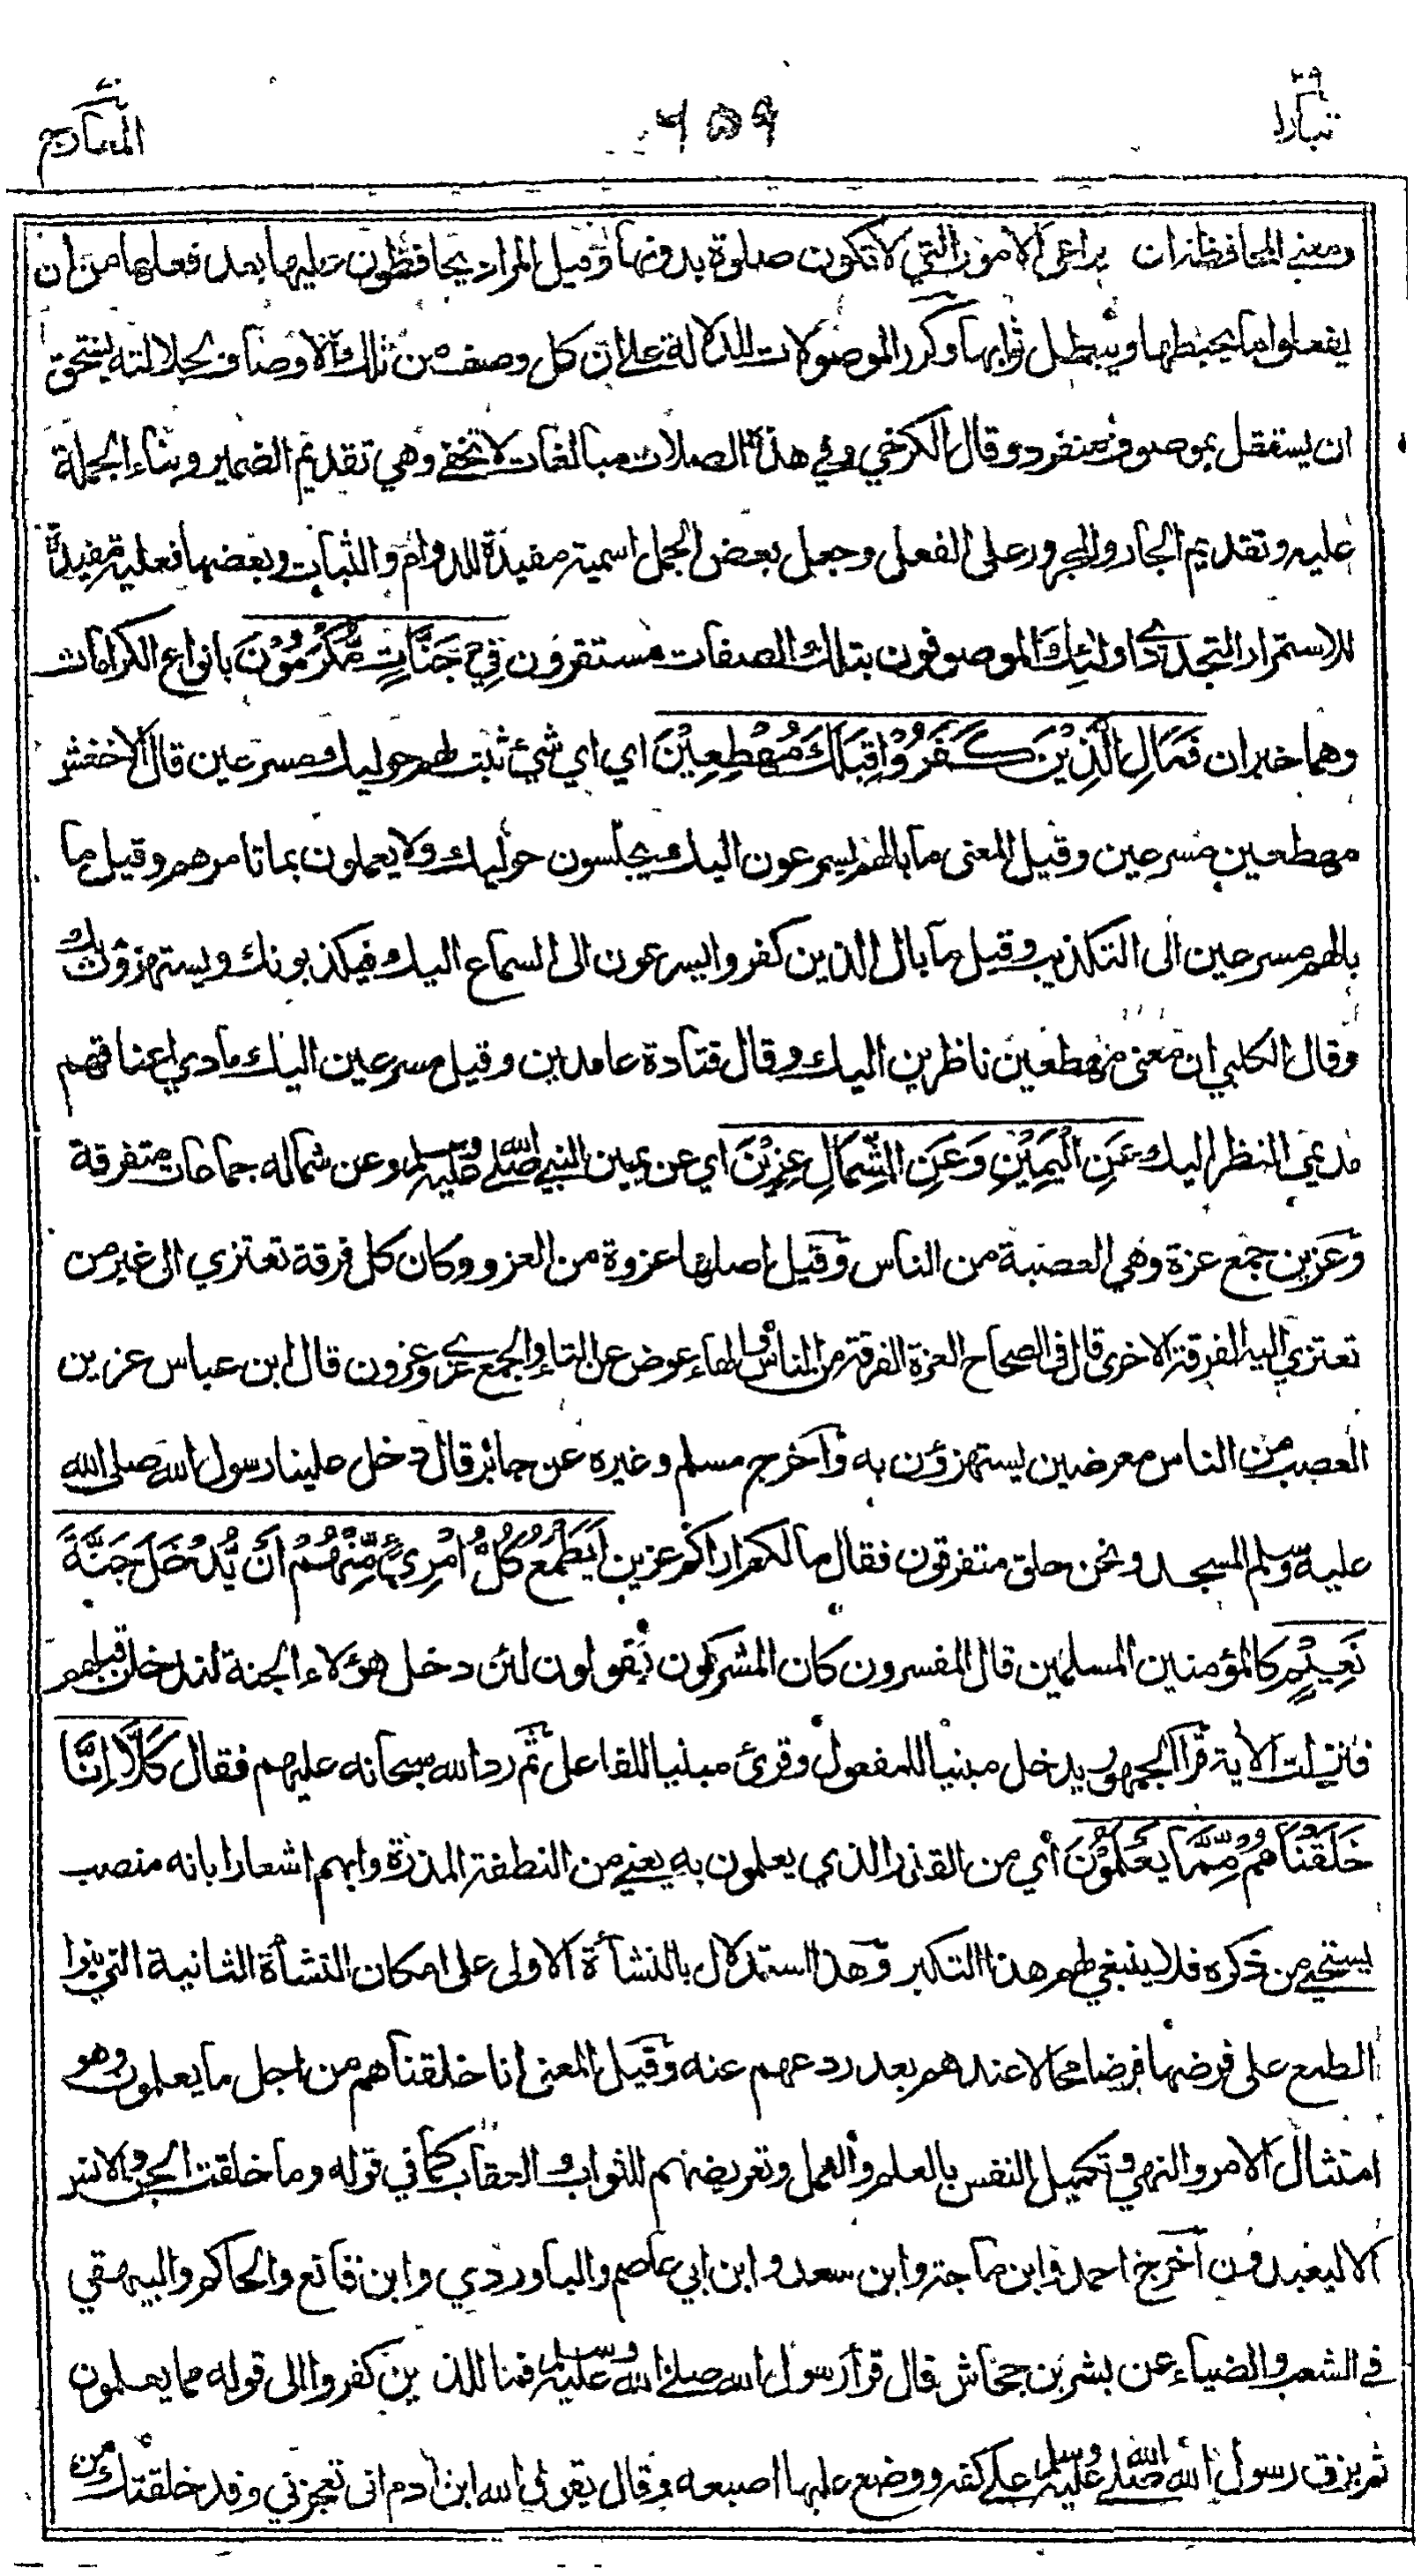 تبارك ٢٩
٦٥٩
المعارج
ومعنى المحافظة ان يراعى الامور التي لا تكون صلوة بدونها وقيل المراد يحافظون عليها بعد فعلها من ان
يفعلوا ما يحبطها ويبطل ثوابها وكرر الموصولات للدلالة على ان كل وصف من تلك الاوصاف لجلالته يستحق
ان يستقل بموصوف منفرد وقال الكرخي وفي هذه الصلات مبالغات لا تخفى وهي تقديم الضمير وبناء الجملة
عليه وتقديم الجار والمجرور على الفعل وجعل بعض الجمل اسمية مفيدة للدوام والثبات وبعضها فعلية مفيدة
للاستمرار التجددي اولئِك الموصوفون بتلك الصفات مستقرون فِيْ جَنَّاتٍ مُّكْرَمُوْنَ بانواع الكرامات
وهما خبران فَمَالِ الَّذِيْنَ كَفَرُوْا قِبَلَكَ مُهْطِعِيْنَ اي اي شيء ثبت لهم حواليك مسرعين قال الاخفش
مهطعين مسرعين وقيل المعنى ما بالهم يسرعون اليك ويجلسون حواليك ولا يعملون بما تامرهم وقيل ما
بالهم مسرعين الى التكذيب وقيل ما بال الذين كفروا يسرعون الى السماع اليك فيكذبونك ويستهزؤن بك
وقال الكلبي ان معنى مهطعين ناظرين اليك وقال قتادة عامدين وقيل مسرعين اليك مادي اعناقهم
مدعي النظر اليك عَنِ الْيَمِيْنِ وَعَنِ الشِّمَالِ عِزِيْنَ اي عن يمين النبي صلى الله عليه وسلم وعن شماله جماعات متفرقة
وعزين جمع عزة وهي العصبة من الناس وقيل اصلها عزوة من العزو وكان كل فرقة تعتزي الى غير من
تعتزي اليه الفرقة الاخرى قال في الصحاح العزة الفرقة من الناس والهاء عوض عن التاء والجمع عزى وعزون قال ابن عباس عزين
العصب من الناس معرضين يستهزؤن به واخرج مسلم وغيره عن جابر قال دخل علينا رسول الله صلى الله
عليه وسلم المسجد ونحن حلق متفرقون فقال ما لكم اراكم عزين اَيَطْمَعُ كُلُّ امْرِئٍ مِّنْهُمْ اَنْ يُّدْخَلَ جَنَّةَ
نَعِيْمٍ كالمؤمنين المسلمين قال المفسرون كان المشركون يقولون لئن دخل هؤلاء الجنة لندخلن قبلهم
فنزلت الاية قرأ الجمهور يدخل مبنيا للمفعول وقرئ مبنيا للفاعل ثم رد الله سبحانه عليهم فقال كَلَّا اِنَّا
خَلَقْنَاهُمْ مِّمَّا يَعْلَمُوْنَ أي من القذر الذي يعلمون به يعني من النطفة المذرة وابهم اشعارا بانه منصب
يستحيى من ذكره فلا ينبغي لهم هذا التكبر وهذا استدلال بالنشأة الاولى على امكان النشأة الثانية التي بنوا
الطمع على فرضها فرضا محالا عندهم بعد ردعهم عنه وقيل المعنى انا خلقناهم من اجل ما يعلمون وهو
امتثال الامر والنهي وتكميل النفس بالعلم والعمل وتعريضهم للثواب والعقاب كما في قوله وما خلقت الجن والانس
الا ليعبدون اخرج احمد وابن ماجة وابن سعد وابن ابي عاصم والباوردي وابن قانع والحاكم والبيهقي
في الشعب والضياء عن بشر بن جحاش قال قرأ رسول الله صلى الله عليه وسلم فمال الذين كفروا الى قوله مما يعلمون
ثم بزق رسول الله صلى الله عليه وسلم على كفه ووضع عليها اصبعه وقال يقول الله ابن ادم انى تعجزني وقد خلقتك من